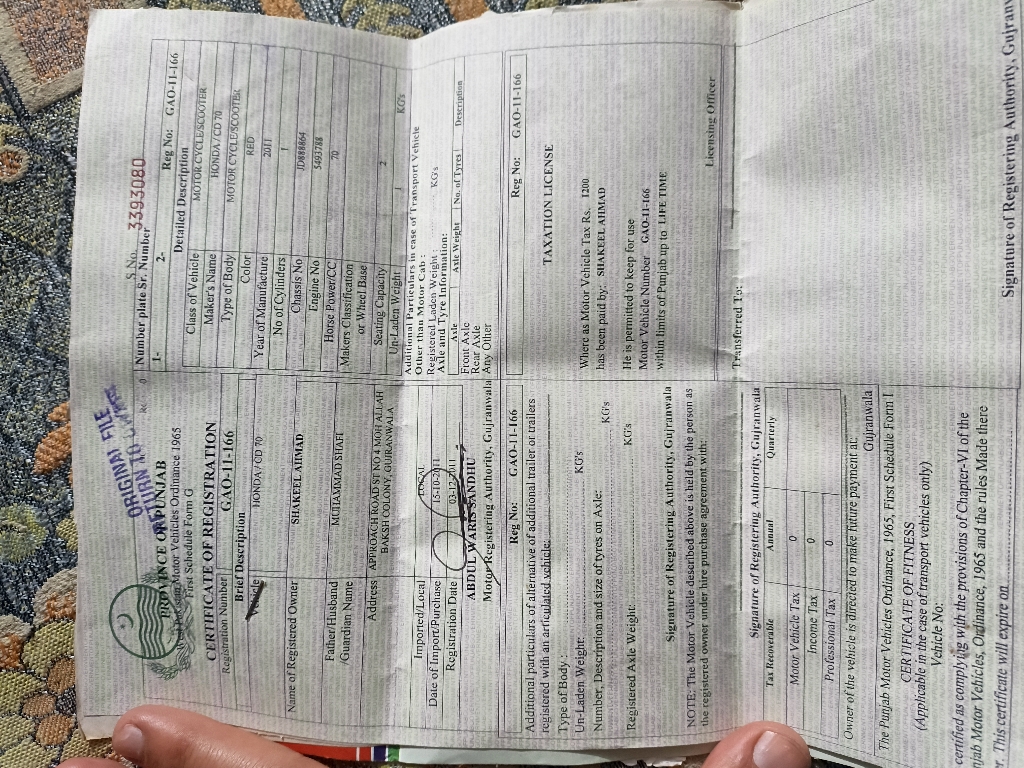 ORIGINAL FILE
RETURN TO
PROVINCE OF PUNJAB
West Pakistan Motor Vehicles Ordinance 1965
First Schedule Form G
CERTIFICATE OF REGISTRATION
Registration Number GAO-11-166
Brief Description
Vehicle HONDA / CD 70
Name of Registered Owner SHAKEEL AHMAD
Father/Husband MUHAMMAD SHAFI
/Guardian Name
Address APPROACH ROAD ST NO 4 MOH ALLAH
BAKSH COLONY, GUJRANWALA
Imported/Local LOCAL
Date of Import/Purchase 15-10-2011
Registration Date
ABDUL WARIS SANDHU
Motor Registering Authority, Gujranwala
S No. 3393080
Number plate Sr. Number
1- 2- Reg No: GAO-11-166
Detailed Description
Class of Vehicle MOTOR CYCLE/SCOOTER
Maker's Name HONDA / CD 70
Type of Body MOTOR CYCLE/SCOOTER
Color RED
Year of Manufacture 2011
No of Cylinders 1
Chassis No JD888864
Engine No 5493788
Horse Power/CC 70
Makers Classification
or Wheel Base
Seating Capacity 2
Un-Laden Weight KG's
Additional Particulars in case of Transport Vehicle
Other than Motor Cab :
Registered Laden Weight : KG's
Axle and Tyre Information:
Axle Axle Weight No. of Tyres Description
Front Axle
Rear Axle
Any Other
Reg No: GAO-11-166
Additional particulars of alternative of additional trailer or trailers
registered with an articulated vehicle:
Type of Body :
Un-Laden Weight: KG's
Number, Description and size of tyres on Axle: KG's
Registered Axle Weight: KG's
Signature of Registering Authority, Gujranwala
NOTE: The Motor Vehicle described above is held by the person as
the registered owner under hire purchase agreement with:
Reg No: GAO-11-166
TAXATION LICENSE
Where as Motor Vehicle Tax Rs. 1200
has been paid by: SHAKEEL AHMAD
He is permitted to keep for use
Motor Vehicle Number GAO-11-166
within limits of Punjab up to LIFE TIME
Licensing Officer
Transferred To:
Signature of Registering Authority, Gujranwala
Tax Recoverable Annual Quarterly
Motor Vehicle Tax 0
Income Tax 0
Professional Tax 0
Owner of the vehicle is directed to make future payment at:
Gujranwala
The Punjab Motor Vehicles Ordinance, 1965, First Schedule Form I
CERTIFICATE OF FITNESS
(Applicable in the case of transport vehicles only)
Vehicle No:
certified as complying with the provisions of Chapter-VI of the
njab Motor Vehicles, Ordinance, 1965 and the rules Made there
r. This certificate will expire on
Signature of Registering Authority, Gujranw